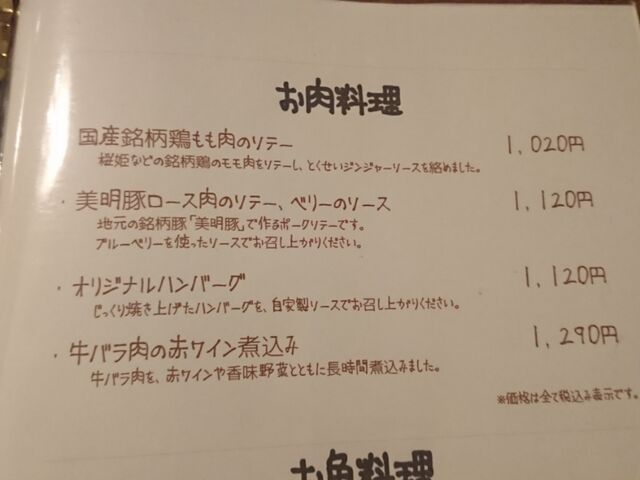 お肉料理
国産銘柄鶏もも肉のソテー 1,020円
桜姫などの銘柄鶏のモモ肉をソテーし、とくせいジンジャーソースを絡めました。
・美明豚ロース肉のソテー、ベリーのソース 1,120円
地元の銘柄豚「美明豚」で作るポークソテーです。
ブルーベリーを使ったソースでお召し上がりください。
・オリジナルハンバーグ 1,120円
じっくり焼き上げたハンバーグを、自家製ソースでお召し上がりください。
・牛バラ肉の赤ワイン煮込み 1,290円
牛バラ肉を、赤ワインや香味野菜とともに長時間煮込みました。
※価格は全て税込み表示です。
お魚料理